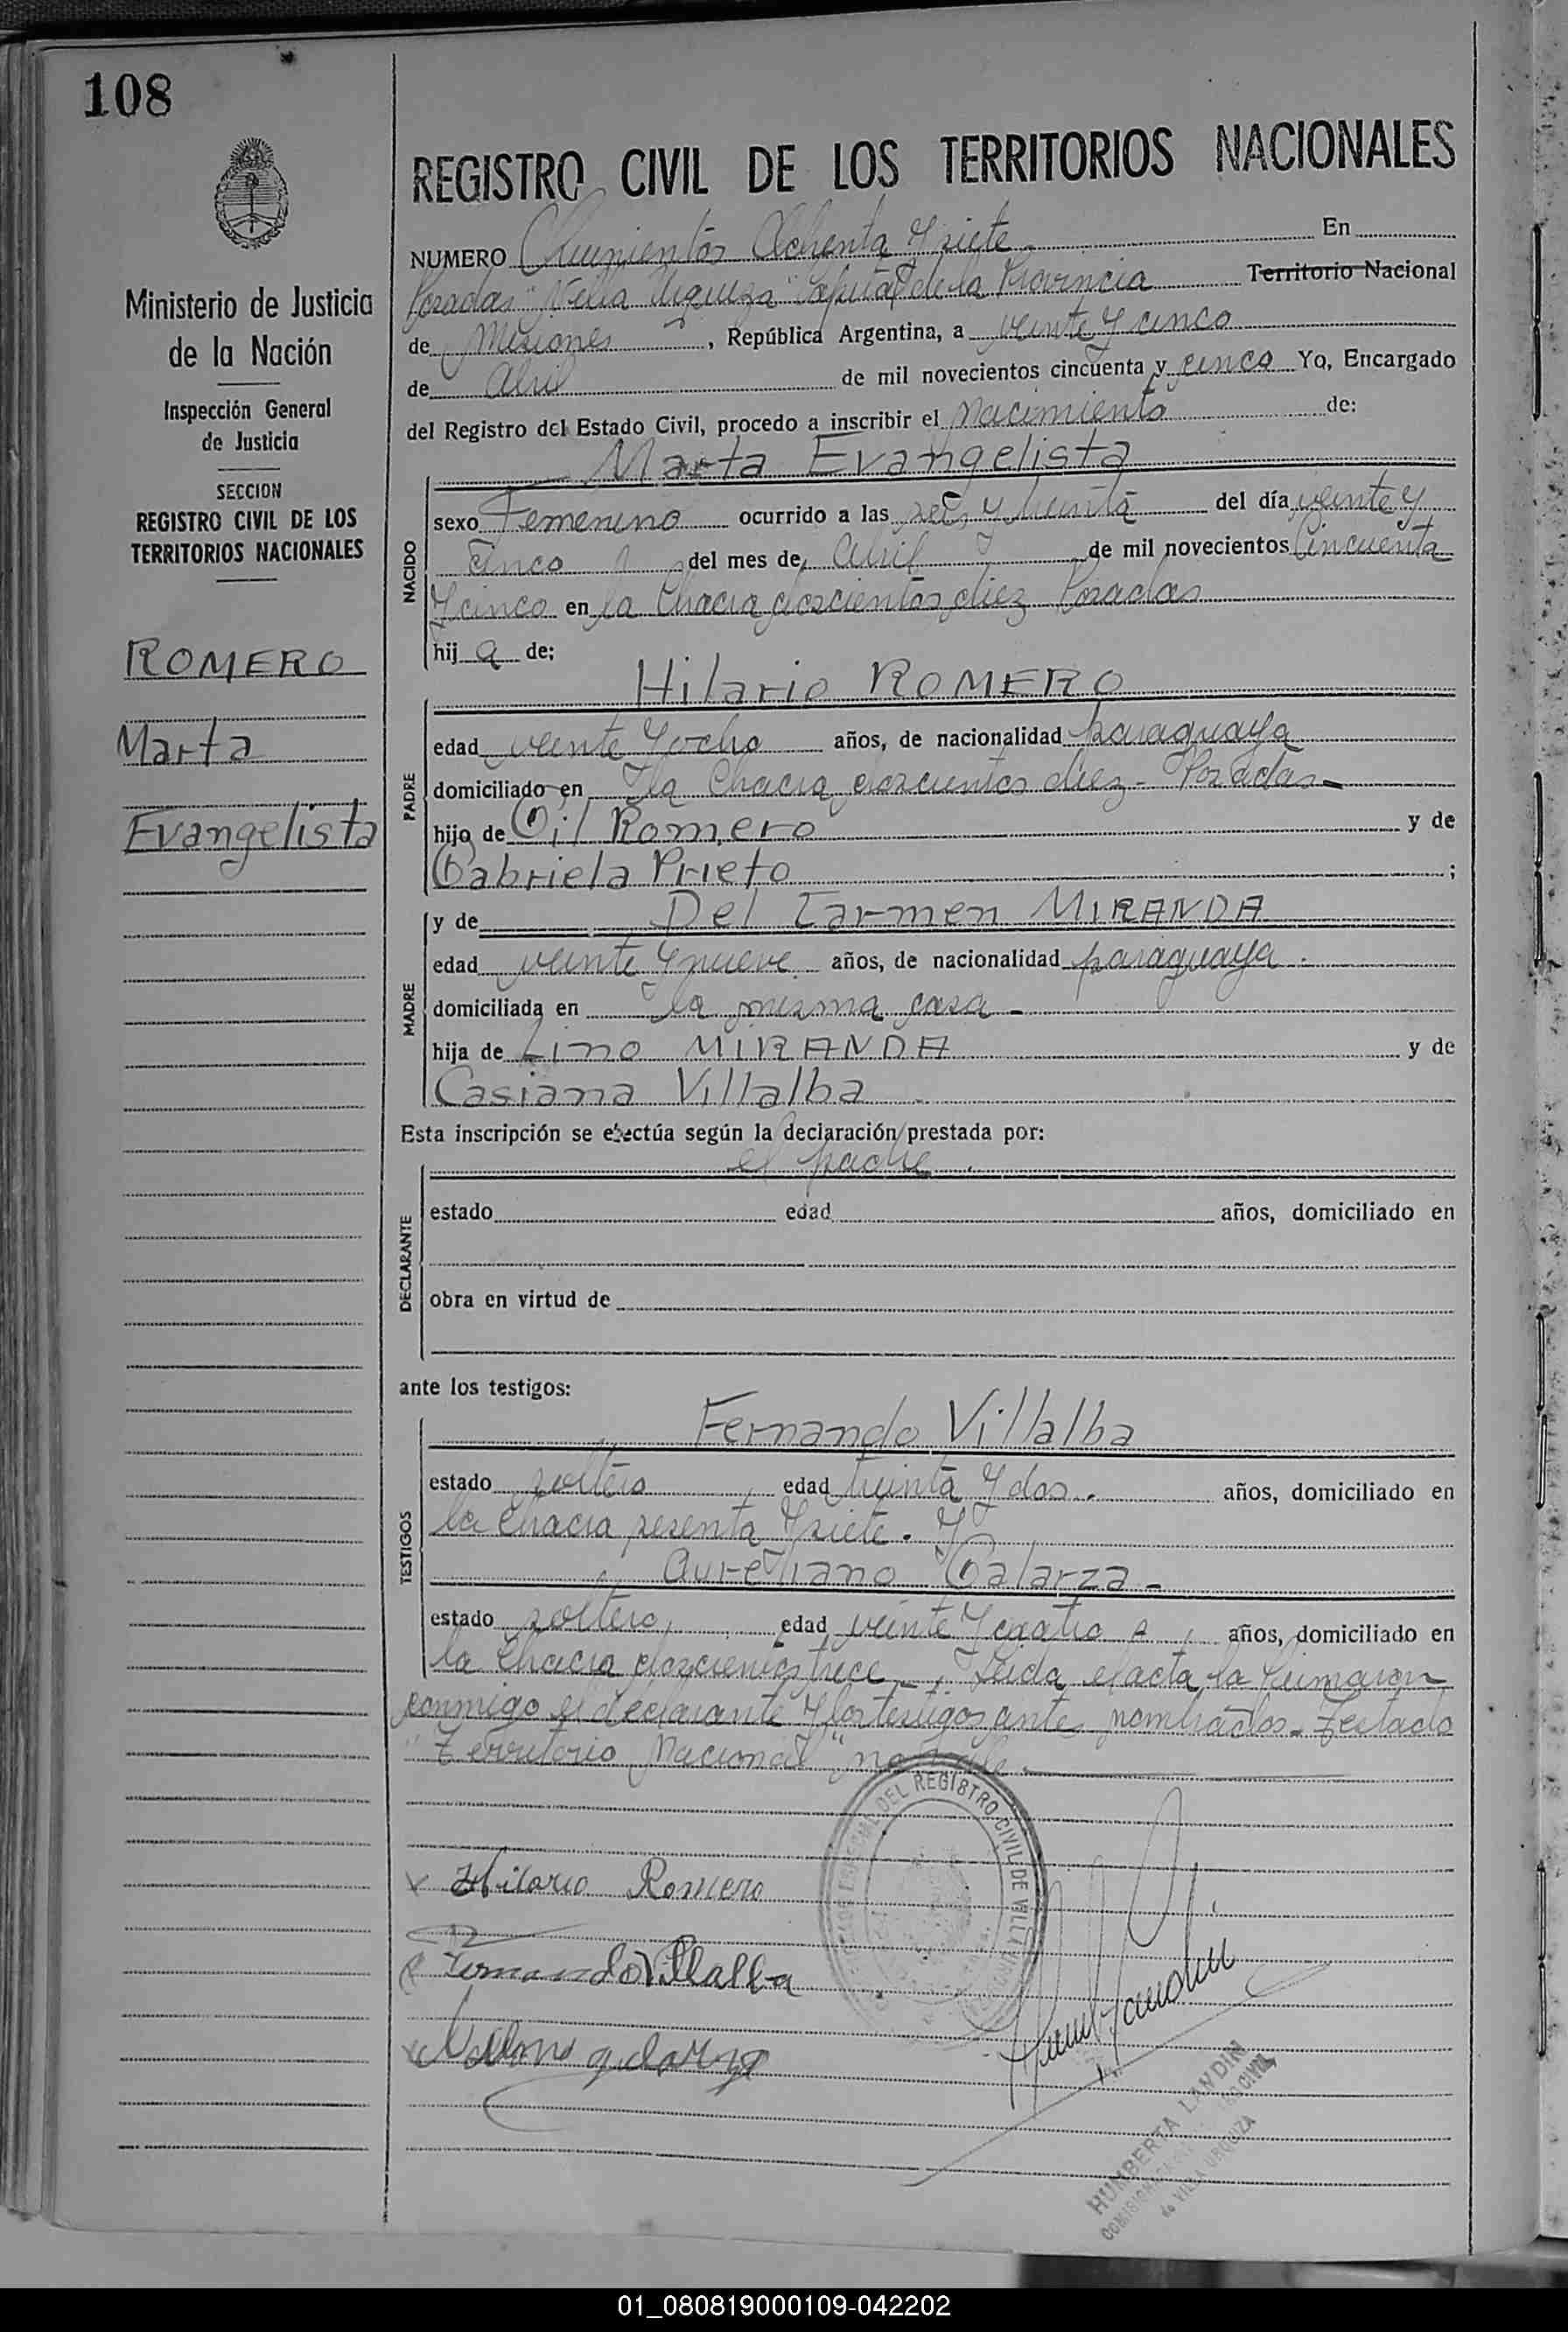 108
Ministerio de Justicia
de la Nación
Inspección General
de Justicia
SECCION
REGISTRO CIVIL DE LOS
TERRITORIOS NACIONALES
ROMERO
Marta
Evangelista
REGISTRO CIVIL DE LOS TERRITORIOS NACIONALES
NUMERO Quinientos Ochenta y siete En
Posadas "Villa Urquiza" Capital de la Provincia Territorio Nacional
de Misiones, República Argentina, a veinte y cinco
de Abril de mil novecientos cincuenta y cinco Yo, Encargado
del Registro del Estado Civil, procedo a inscribir el nacimiento de:
Marta Evangelista
NACIDO
sexo Femenino ocurrido a las seis y treinta del día veinte y
cinco del mes de Abril de mil novecientos Cincuenta
y cinco en la Chacra doscientos diez Posadas
hij a de:
Hilario ROMERO
PADRE
edad veinte y ocho años, de nacionalidad paraguaya
domiciliado en la Chacra doscientos diez - Posadas -
hijo de Gil Romero y de
Gabriela Prieto ;
y de Del Carmen MIRANDA
MADRE
edad veinte y nueve años, de nacionalidad paraguaya.
domiciliada en la misma casa -
hija de Lino MIRANDA y de
Casiana Villalba
Esta inscripción se efectúa según la declaración prestada por:
el padre.
DECLARANTE
estado edad años, domiciliado en
obra en virtud de
ante los testigos:
Fernando Villalba
TESTIGOS
estado soltero edad treinta y dos. años, domiciliado en
la Chacra sesenta y siete. y
Aureliano Galarza -
estado soltero, edad veinte y cuatro años, domiciliado en
la Chacra doscientos trece. Leida el acta, la firmaron
conmigo el declarante y los testigos antes nombrados - Testado
"Territorio Nacional" no vale
Hilario Romero
Fernando Villalba
DEL REGISTRO CIVIL DE VILLA
HUMBERTA LANDIN
de VILLA URQUIZA
01_080819000109-042202